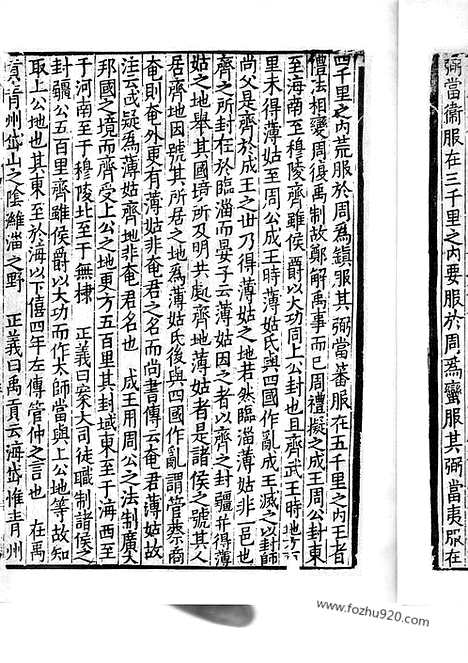 弼當衞服在三千里之內要服於周爲蠻服其弼當夷服在
四千里之內荒服於周爲鎮服其弼當蕃服在五千里之內王者
禮法相變周復禹制故鄭解禹事而已周禮擬之成王周公封東
至海南至穆陵齊雖侯爵以大功同上公封也且齊武王時地方百
里未得薄姑至周公成王時薄姑氏與四國作亂成王滅之以封師
尚父是齊於成王之世乃得薄姑之地若然臨淄薄姑非一邑也
齊之所封在於臨淄而晏子云薄姑因之者以齊之封疆并得薄
姑之地舉其國境所及明共處齊地薄姑者是諸侯之號其人
居齊地因號其所居之地爲薄姑氏後與四國作亂謂管蔡商
奄則奄外更有薄姑非奄君之名而尚書傳云奄君薄姑故
注云或疑爲薄姑齊地非奄君名也 成王用周公之法制廣大
邦國之境而齊受上公之地更方五百里其封域東至于海西至
于河南至于穆陵北至于無棣 正義曰案大司徒職制諸侯之
封疆公五百里齊雖侯爵以大功而作太師當與上公地等故知
取上公地也其東至於海以下僖四年左傳管仲之言也 在禹
貢青州岱山之陰濰淄之野 正義曰禹貢云海岱惟青州
www.fozhu920.com